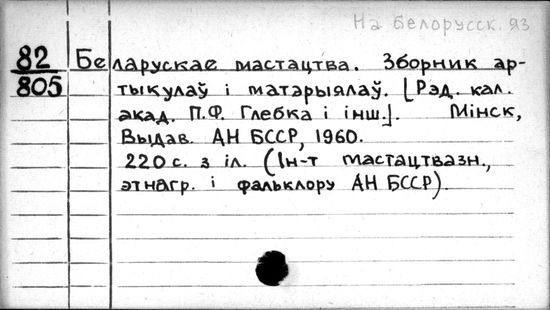 На белорусск. яз
82
805
Беларускае мастацтва. Зборник ар-
тыкулаў і матэрыялаў. [Рэд. кал.
акад. П.Ф. Глебка і інш.]. Мінск,
Выдав. АН БССР, 1960.
220 с. з іл. (Ін-т мастацтвазн.,
этнагр. і фальклору АН БССР).